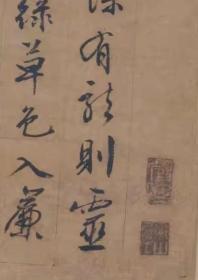 有龍則靈
綠草色入簾